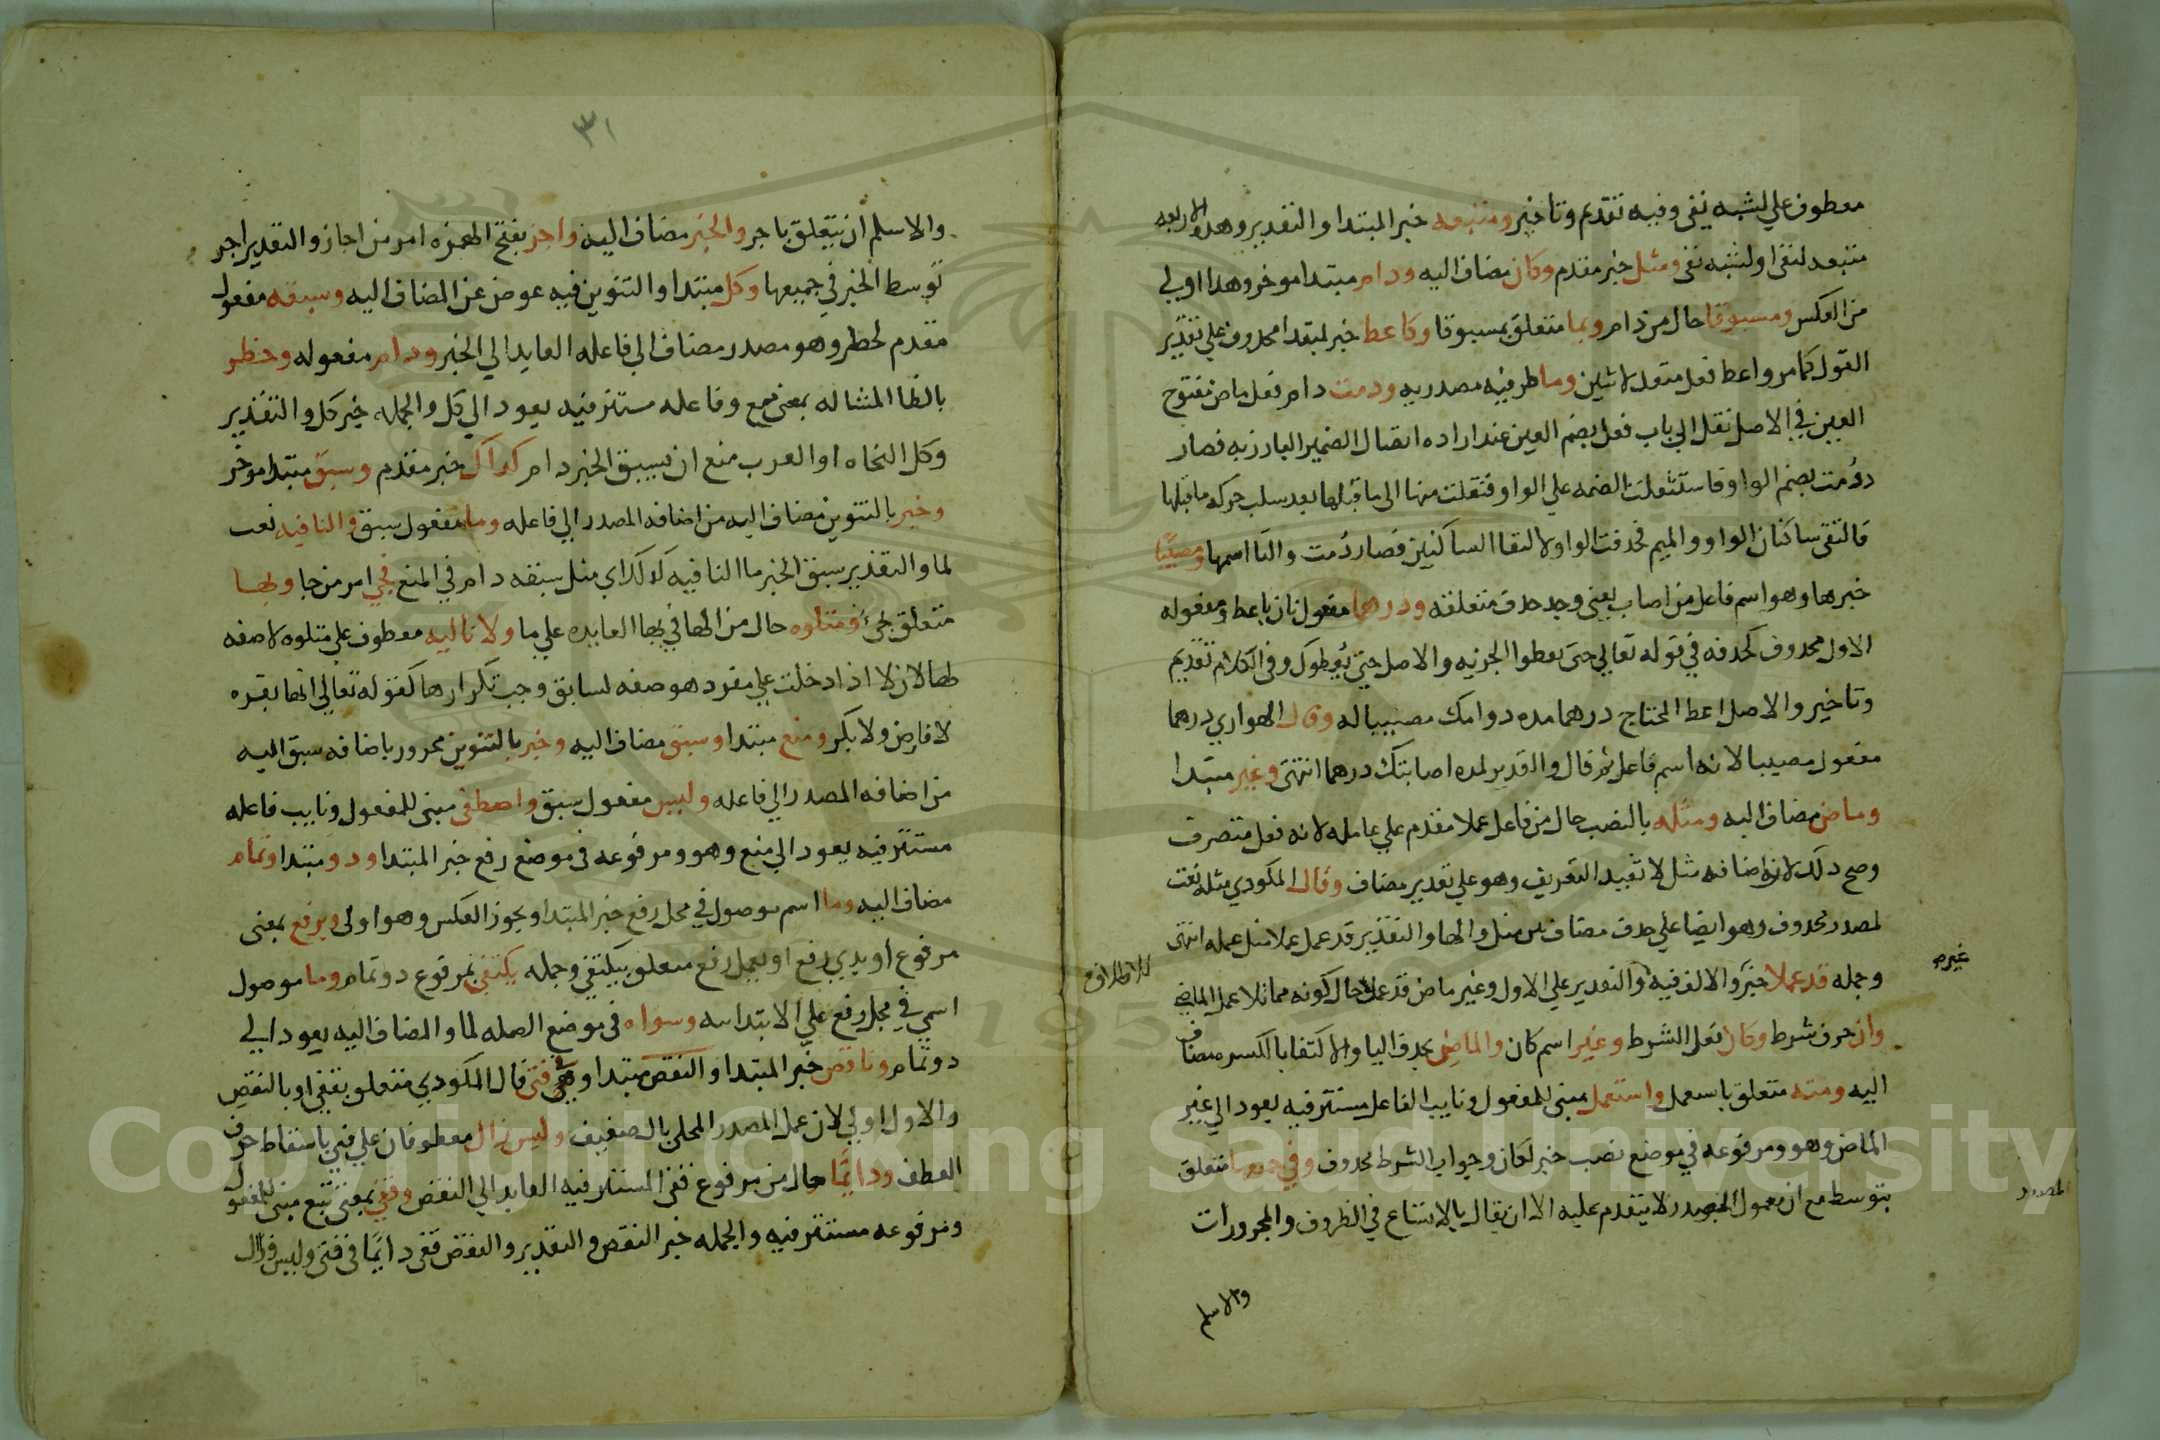 معطوف علي لشبه نفي وفيه تقديم وتاخير ومتبعه خبر المبتدا والتقدير وهذه الاربعه
متبعه لنفي او لشبه نفي ومثل خبر مقدم وكان مضاف اليه ودام مبتدا موخر وهذا اولي
من العكس ومسبوقا حال من دام وبما متعلق بمسبوقا وكاعط خبر لمبتدا محذوف علي تقدير
القول كما مر واعط فعل متعد لاثنين وما ظرفيه مصدريه ودمت دام فعل ماض مفتوح
العين في الاصل نقل الي باب فعل بضم العين عند اراده اتصال الضمير البارز به فصار
دوُمت بضم الواو فاستثقلت الضمه علي الواو فنقلت منها الي ما قبلها بعد سلب حركه ما قبلها
فالتقي ساكنان الواو والميم فحذفت الواو لالتقا الساكنين فصار دُمت والتا اسمها ومصيبًا
خبرها وهو اسم فاعل من اصاب بمعني وجد حذف متعلقه ودرهما مفعول ثان باعط ومفعوله
الاول محذوف كحذفه في قوله تعالي حتي يعطوا الجزيه والاصل حتي يُعطوكم وفي الكلام تقديم
وتاخير والاصل اعط المحتاج درهما مده دوامك مصيبا له وقال الهواري درهما
مفعول مصيبا لانه اسم فاعل ثم قال والتقدير لمده اصابتك درهما انتهي وغير مبتدا
وماض مضاف اليه ومثله بالنصب حال من فاعل عملا مقدم علي عامله لانه فعل متصرف
وصح ذلك لان اضافه مثل لا تفيد التعريف وهو علي تقدير مضاف وقال المكودي مثله نعت
لمصدر محذوف وهو ايضا علي حذف مضاف بين مثل والها والتقدير قد عمل عملا مثل عمله انتهي
وجمله قد عملا خبر والالف فيه للاطلاق والتقدير علي الاول وغير ماض قد عمل حال كونه مماثلا عمل الماضي
وان حرف شرط وكان فعل الشرط وغير اسم كان والماض بحذف اليا والاكتفا بالكسر مضاف
اليه ومنه متعلق باستعمل واستعمل مبني للمفعول ونايب الفاعل مستتر فيه يعود الي غير
الماض وهو ومرفوعه في موضع نصب خبر لكان وجواب الشرط محذوف وفي جميعها متعلق
بتوسط مع ان معمول المصدر لا يتقدم عليه الا ان يقال بالاتساع في الظروف والمجرورات
والاسلم
غيره
المصدر
٣١
والاسلم ان يتعلق باجز والخبر مضاف اليه واجز بفتح الهمزه امر من اجاز والتقدير اجز
توسط الخبر في جميعها وكل مبتدا والتنوين فيه عوض عن المضاف اليه وسبقه مفعول
مقدم لحظر وهو مصدر مضاف الي فاعله العايد الي الخبر ودام مفعوله وحظر
بالظا المشاله بمعني منع وفاعله مستتر فيه يعود الي كل والجمله خبر كل والتقدير
وكل النحاه او العرب منع ان يسبق الخبر دام كذاك خبر مقدم وسبق مبتدا موخر
وخبر بالتنوين مضاف اليه من اضافه المصدر الي فاعله وما مفعول سبق والنافيه نعت
لما والتقدير سبق الخبر ما النافيه كذلك اي مثل سبقه دام في المنع فجي امر من جا وبها
متعلق بجي ومتلوه حال من الها في بها العايده علي ما ولا تاليه معطوف علي متلوه لا صفه
لها لان لا اذا دخلت علي مفرد هو صفه لسابق وجب تكرارها كقوله تعالي انها بقره
لا فارض ولا بكر ومنع مبتدا وسبق مضاف اليه وخبر بالتنوين مجرور باضافه سبق اليه
من اضافه المصدر الي فاعله وليس مفعول سبق واصطفي مبني للمفعول ونايب فاعله
مستتر فيه يعود الي منع وهو ومرفوعه في موضع رفع خبر المبتدا وذو مبتدا وتمام
مضاف اليه وما اسم موصول في محل رفع خبر المبتدا ويجوز العكس وهو اولي وبرفع بمعني
مرفوع او بذي رفع او بعمل رفع متعلق بيكتفي وجمله يكتفي بمرفوع ذو تمام وما موصول
اسمي في محل رفع علي الابتدا وسواه في موضع الصله لما والمضاف اليه يعود الي
ذو تمام وناقص خبر المبتدا والنقص مبتدا وفي فتي قال المكودي متعلق بقفي او بالنقص
والاول اولي لان عمل المصدر المحلي بال ضعيف وليس زال معطوفان علي فتي باسقاط حرف
العطف ودايمًا حال من مرفوع قفي المستتر فيه العايد الي النقص وقفي بمعني تبع مبني للمفعول
ومرفوعه مستتر فيه والجمله خبر النقص والتقدير والنقص قفي دايمًا في فتي وليس وزال
Copyright © King Saud University
195